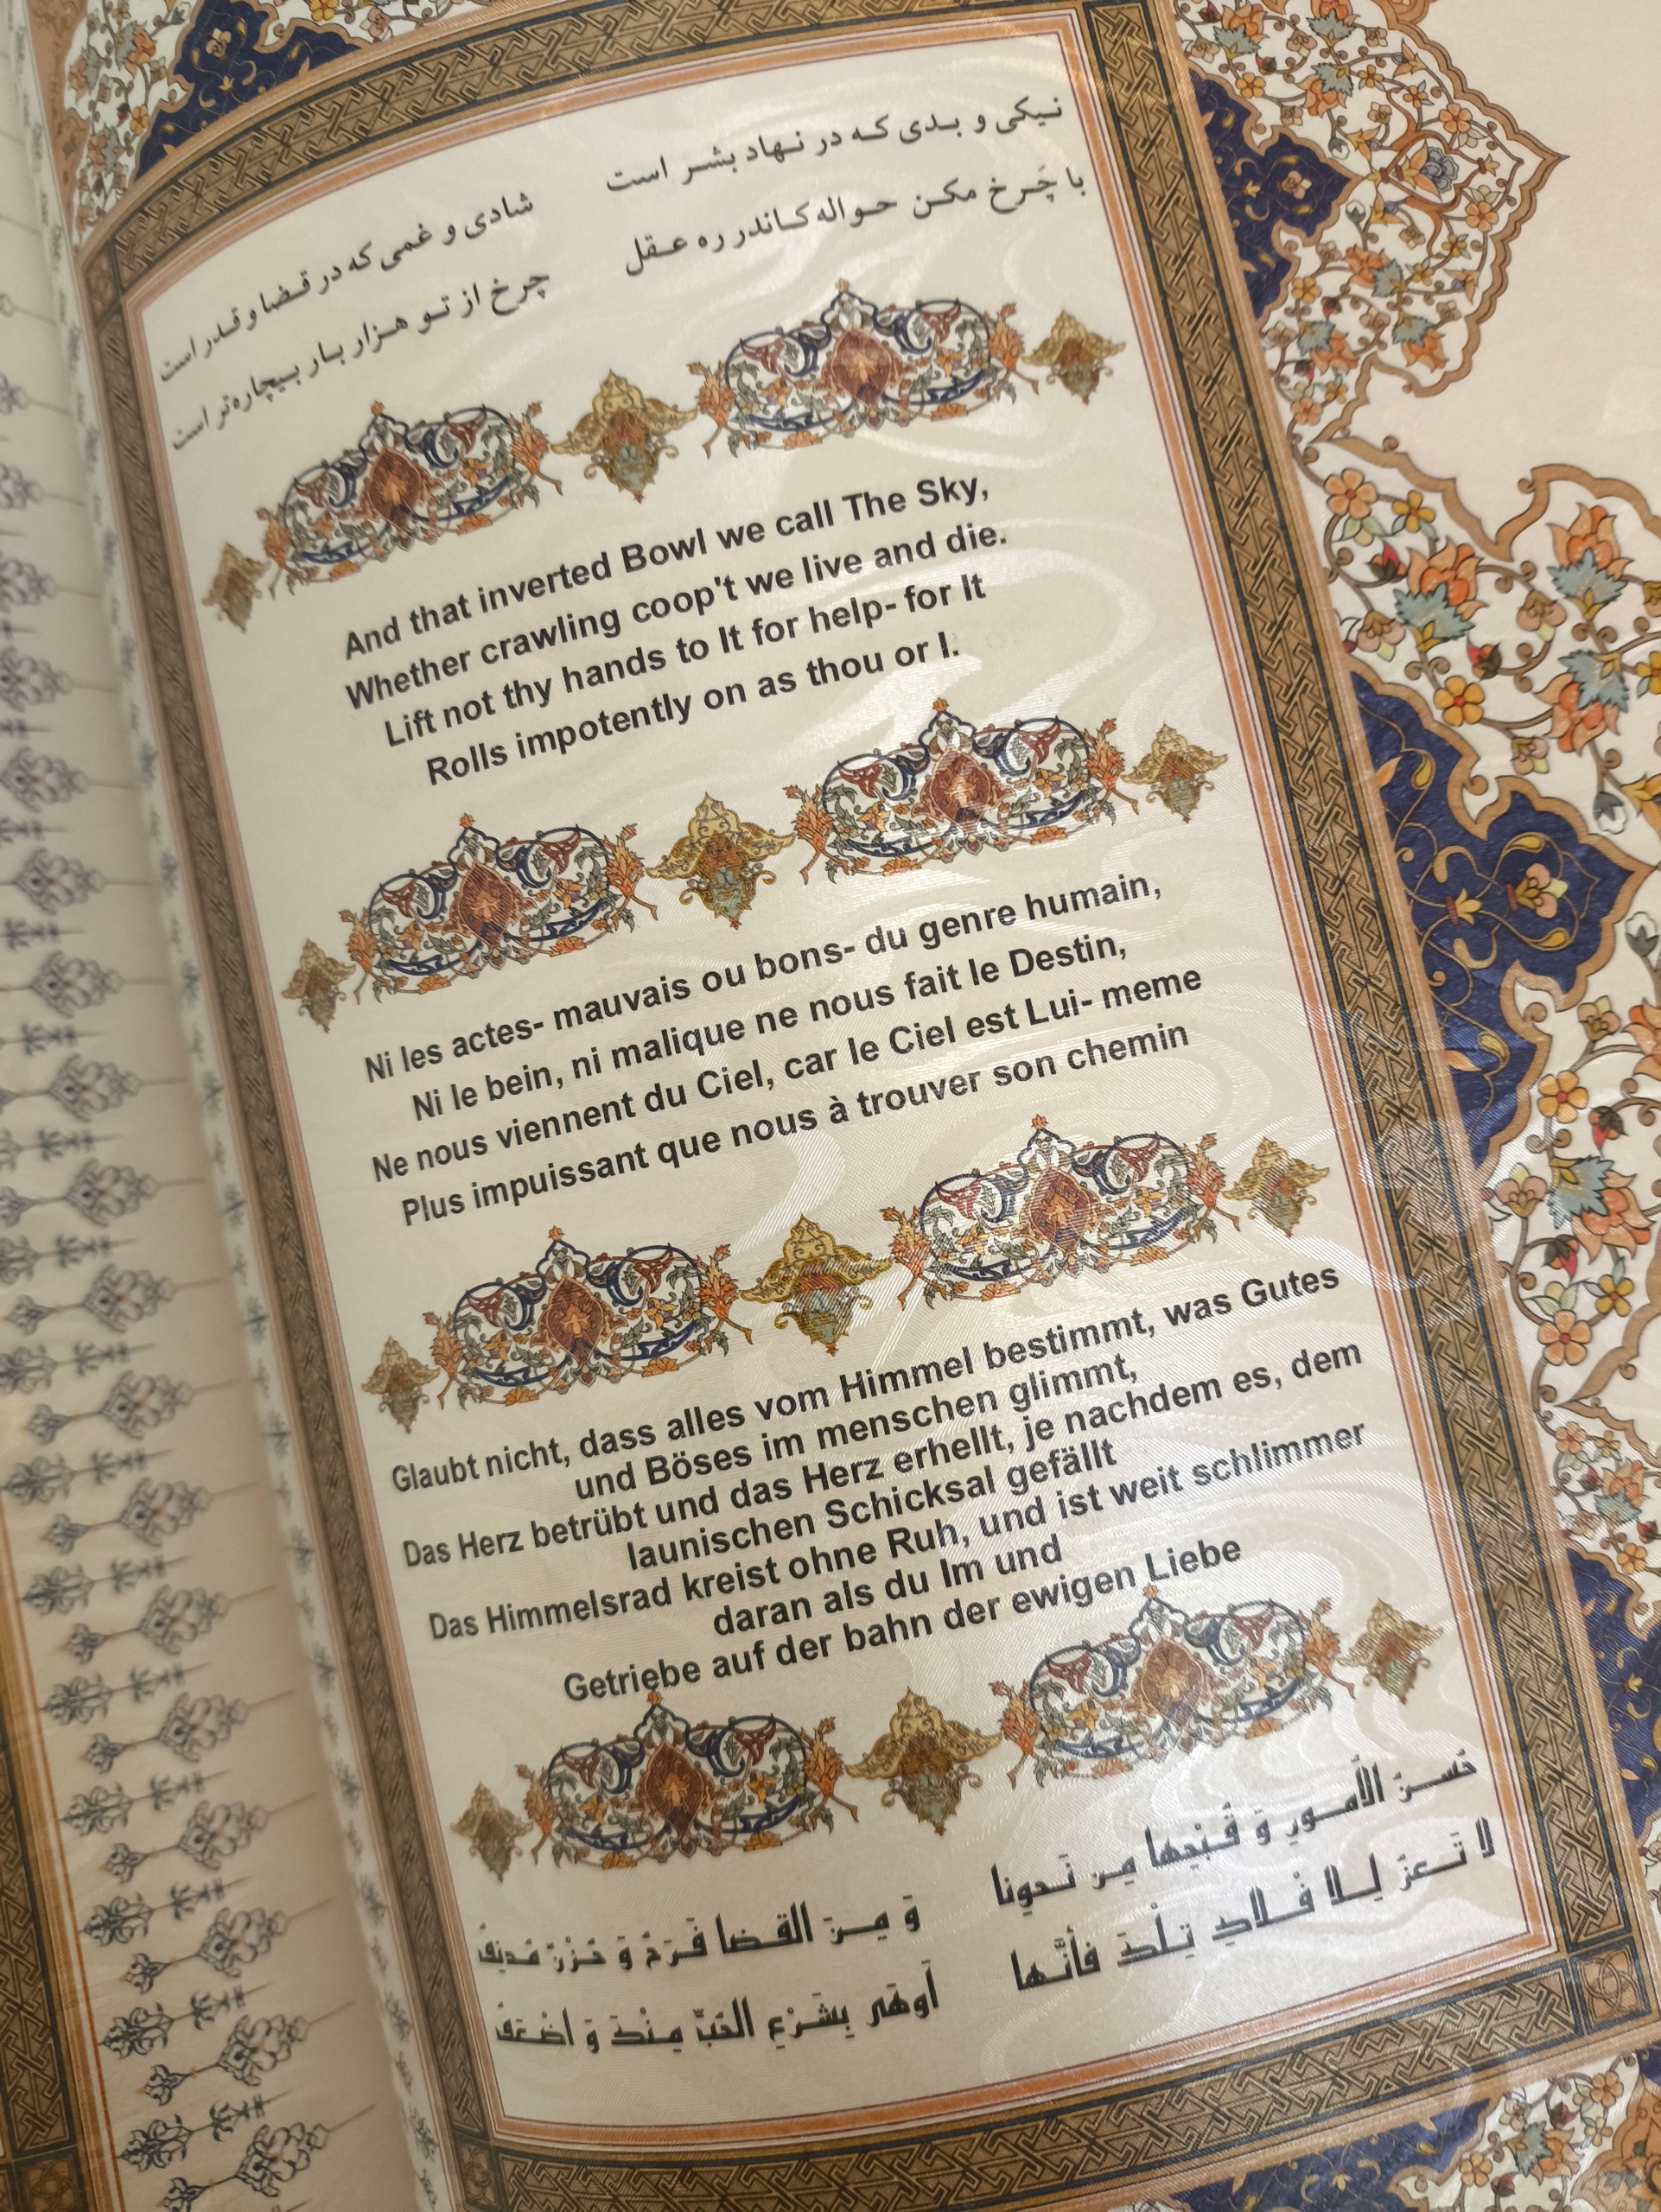 نیکی و بدی که در نهاد بشر است    شادی و غمی که در قضا و قدر است
با چَرخ مکن حواله کاندر ره عقل    چرخ از تو هزار بار بیچاره‌تر است
And that inverted Bowl we call The Sky,
Whether crawling coop't we live and die.
Lift not thy hands to It for help- for It
Rolls impotently on as thou or I.
Ni les actes- mauvais ou bons- du genre humain,
Ni le bein, ni malique ne nous fait le Destin,
Ne nous viennent du Ciel, car le Ciel est Lui- meme
Plus impuissant que nous à trouver son chemin
Glaubt nicht, dass alles vom Himmel bestimmt, was Gutes
und Böses im menschen glimmt,
Das Herz betrübt und das Herz erhellt, je nachdem es, dem
launischen Schicksal gefällt
Das Himmelsrad kreist ohne Ruh, und ist weit schlimmer
daran als du Im und
Getriebe auf der bahn der ewigen Liebe
حُسنُ الأُمورِ وَ قُبْحِها مِن نَحونا    وَ مِنَ القضا فَرَحٌ وَ حُزْنٌ مُدنِفُ
لا تَعزُ لِلافْلاكِ تِلْكَ فأنَّها    أوهَی بِشَرْعِ الحُبِّ مِنْكَ وَ اضْعَفُ